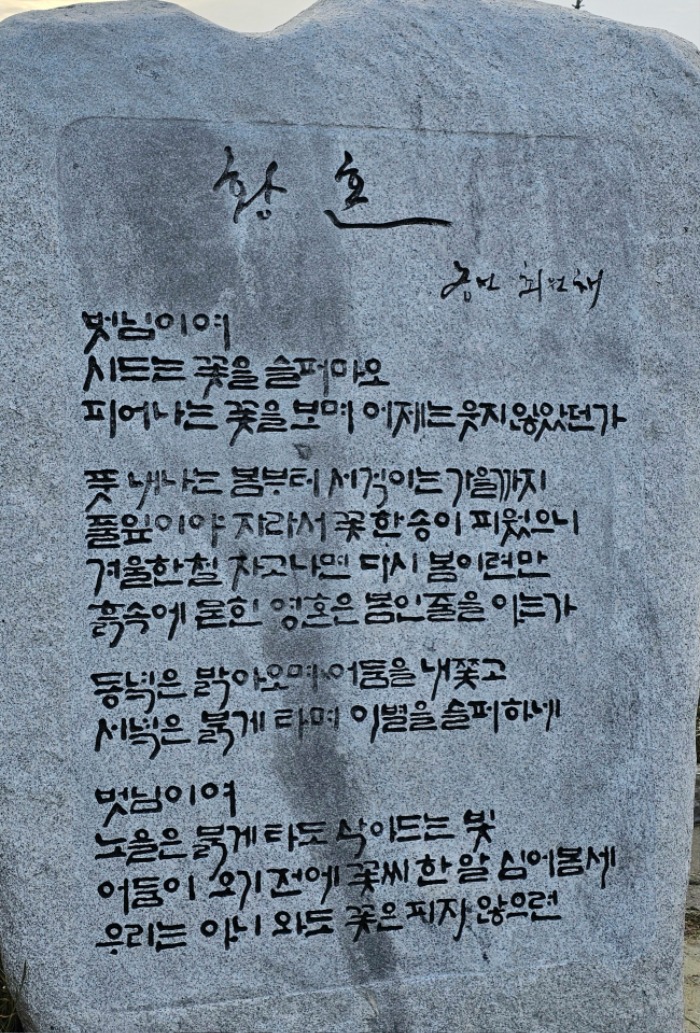 황혼
최언채
벗님이여
시드는 꽃을 슬퍼마오
피어나는 꽃을 보며 어제는 웃지 않았던가
풋 내나는 봄부터 서걱이는 가을까지
풀잎이야 자라서 꽃 한송이 피웠으니
겨울한철 자고나면 다시 봄이련만
흙속에 묻힌 영혼은 봄인줄을 아는가
동녘은 밝아오며 어둠을 내쫓고
서녘은 붉게 타며 이별을 슬퍼하네
벗님이여
노을은 붉게 타도 삭아드는 빛
어둠이 오기 전에 꽃씨 한 알 심어봄세
우리는 아니 와도 꽃은 피지 않으련